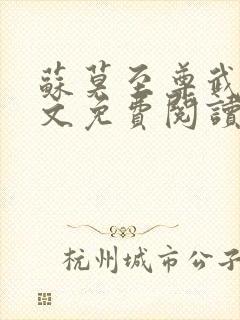 蘇莫至尊武
文免費閱讀
杭州城市公子